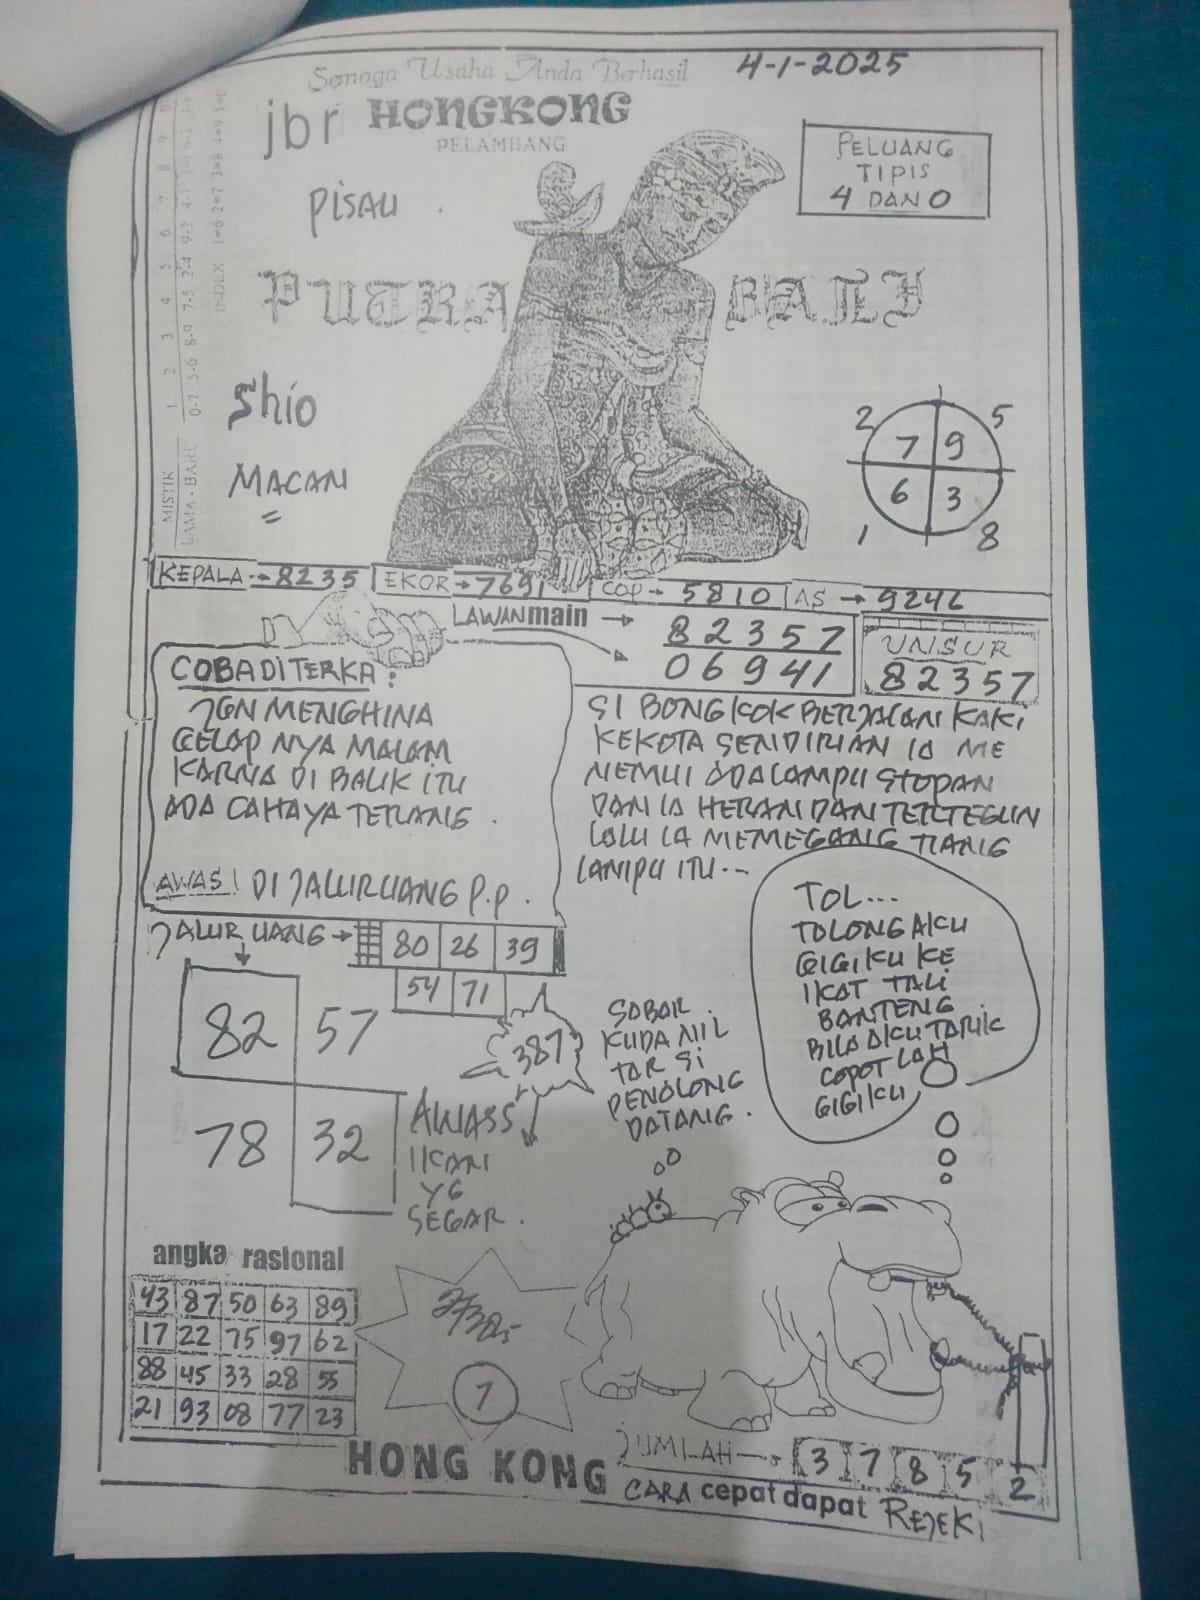 Semoga Usaha Anda Berhasil
4-1-2025
jbr HONGKONG
PELAMBANG
PELUANG
TIPIS
4 DAN 0
PISAU
PUTRA BALI
Shio
MACAN
MISTIK
LAMA - BARU
INDEX 1=6 2=7 3=8 4=9 5=0
2 5
7 9
6 3
1 8
KEPALA → 8235 EKOR → 7691 COP → 5810 AS → 9246
LAWAN main →
8 2 3 5 7
0 6 9 4 1
UNSUR
8 2 3 5 7
COBA DITERKA :
JGN MENGHINA
GELAP NYA MALAM
KARNA DI BALIK ITU
ADA CAHAYA TERANG.
AWAS! DI JALUR UANG P.P.
SI BONGKOK BERJALAN KAKI
KEKOTA SENDIRIAN IA ME
NEMUI ADA LAMPU STOPAN
DAN IA HERAN DAN TERTEGUN
LALU IA MEMEGANG TIANG
LAMPU ITU--
JALUR UANG → 80 26 39
54 71
82 57
78 32
387
AWASS
IKAN
YG
SEGAR.
SABAR
KUDA NIL
TAR SI
PENOLONG
DATANG.
TOL...
TOLONG AKU
GIGIKU KE
IKAT TALI
BANTENG
BILA AKU TARIK
COPOT LAH
GIGIKU
angka rasional
43 87 50 63 89
17 22 75 97 62
88 45 33 28 55
21 93 08 77 23
7
JUMLAH → 3 7 8 5 2
HONG KONG
CARA cepat dapat REJEKI